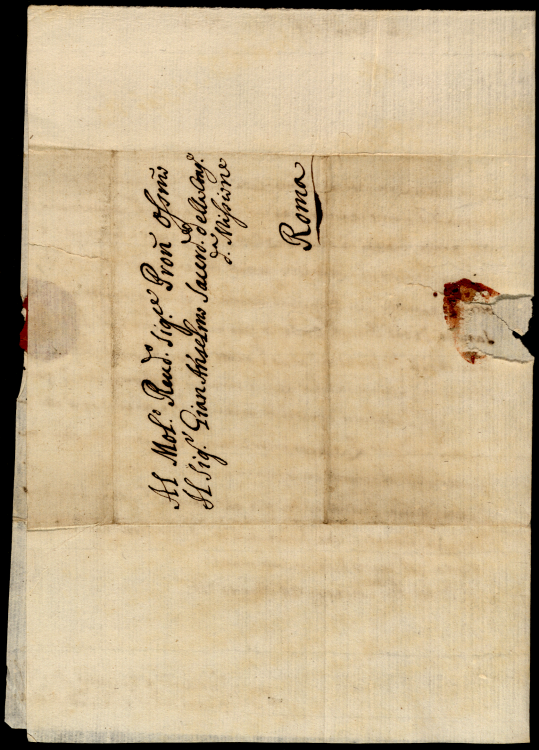 Al Mol.º Rend.º Sig.re Pron Ossmo
Il Sig.r Gian Anselmo Sacerd.te della Cong.e
d.a Missione
Roma